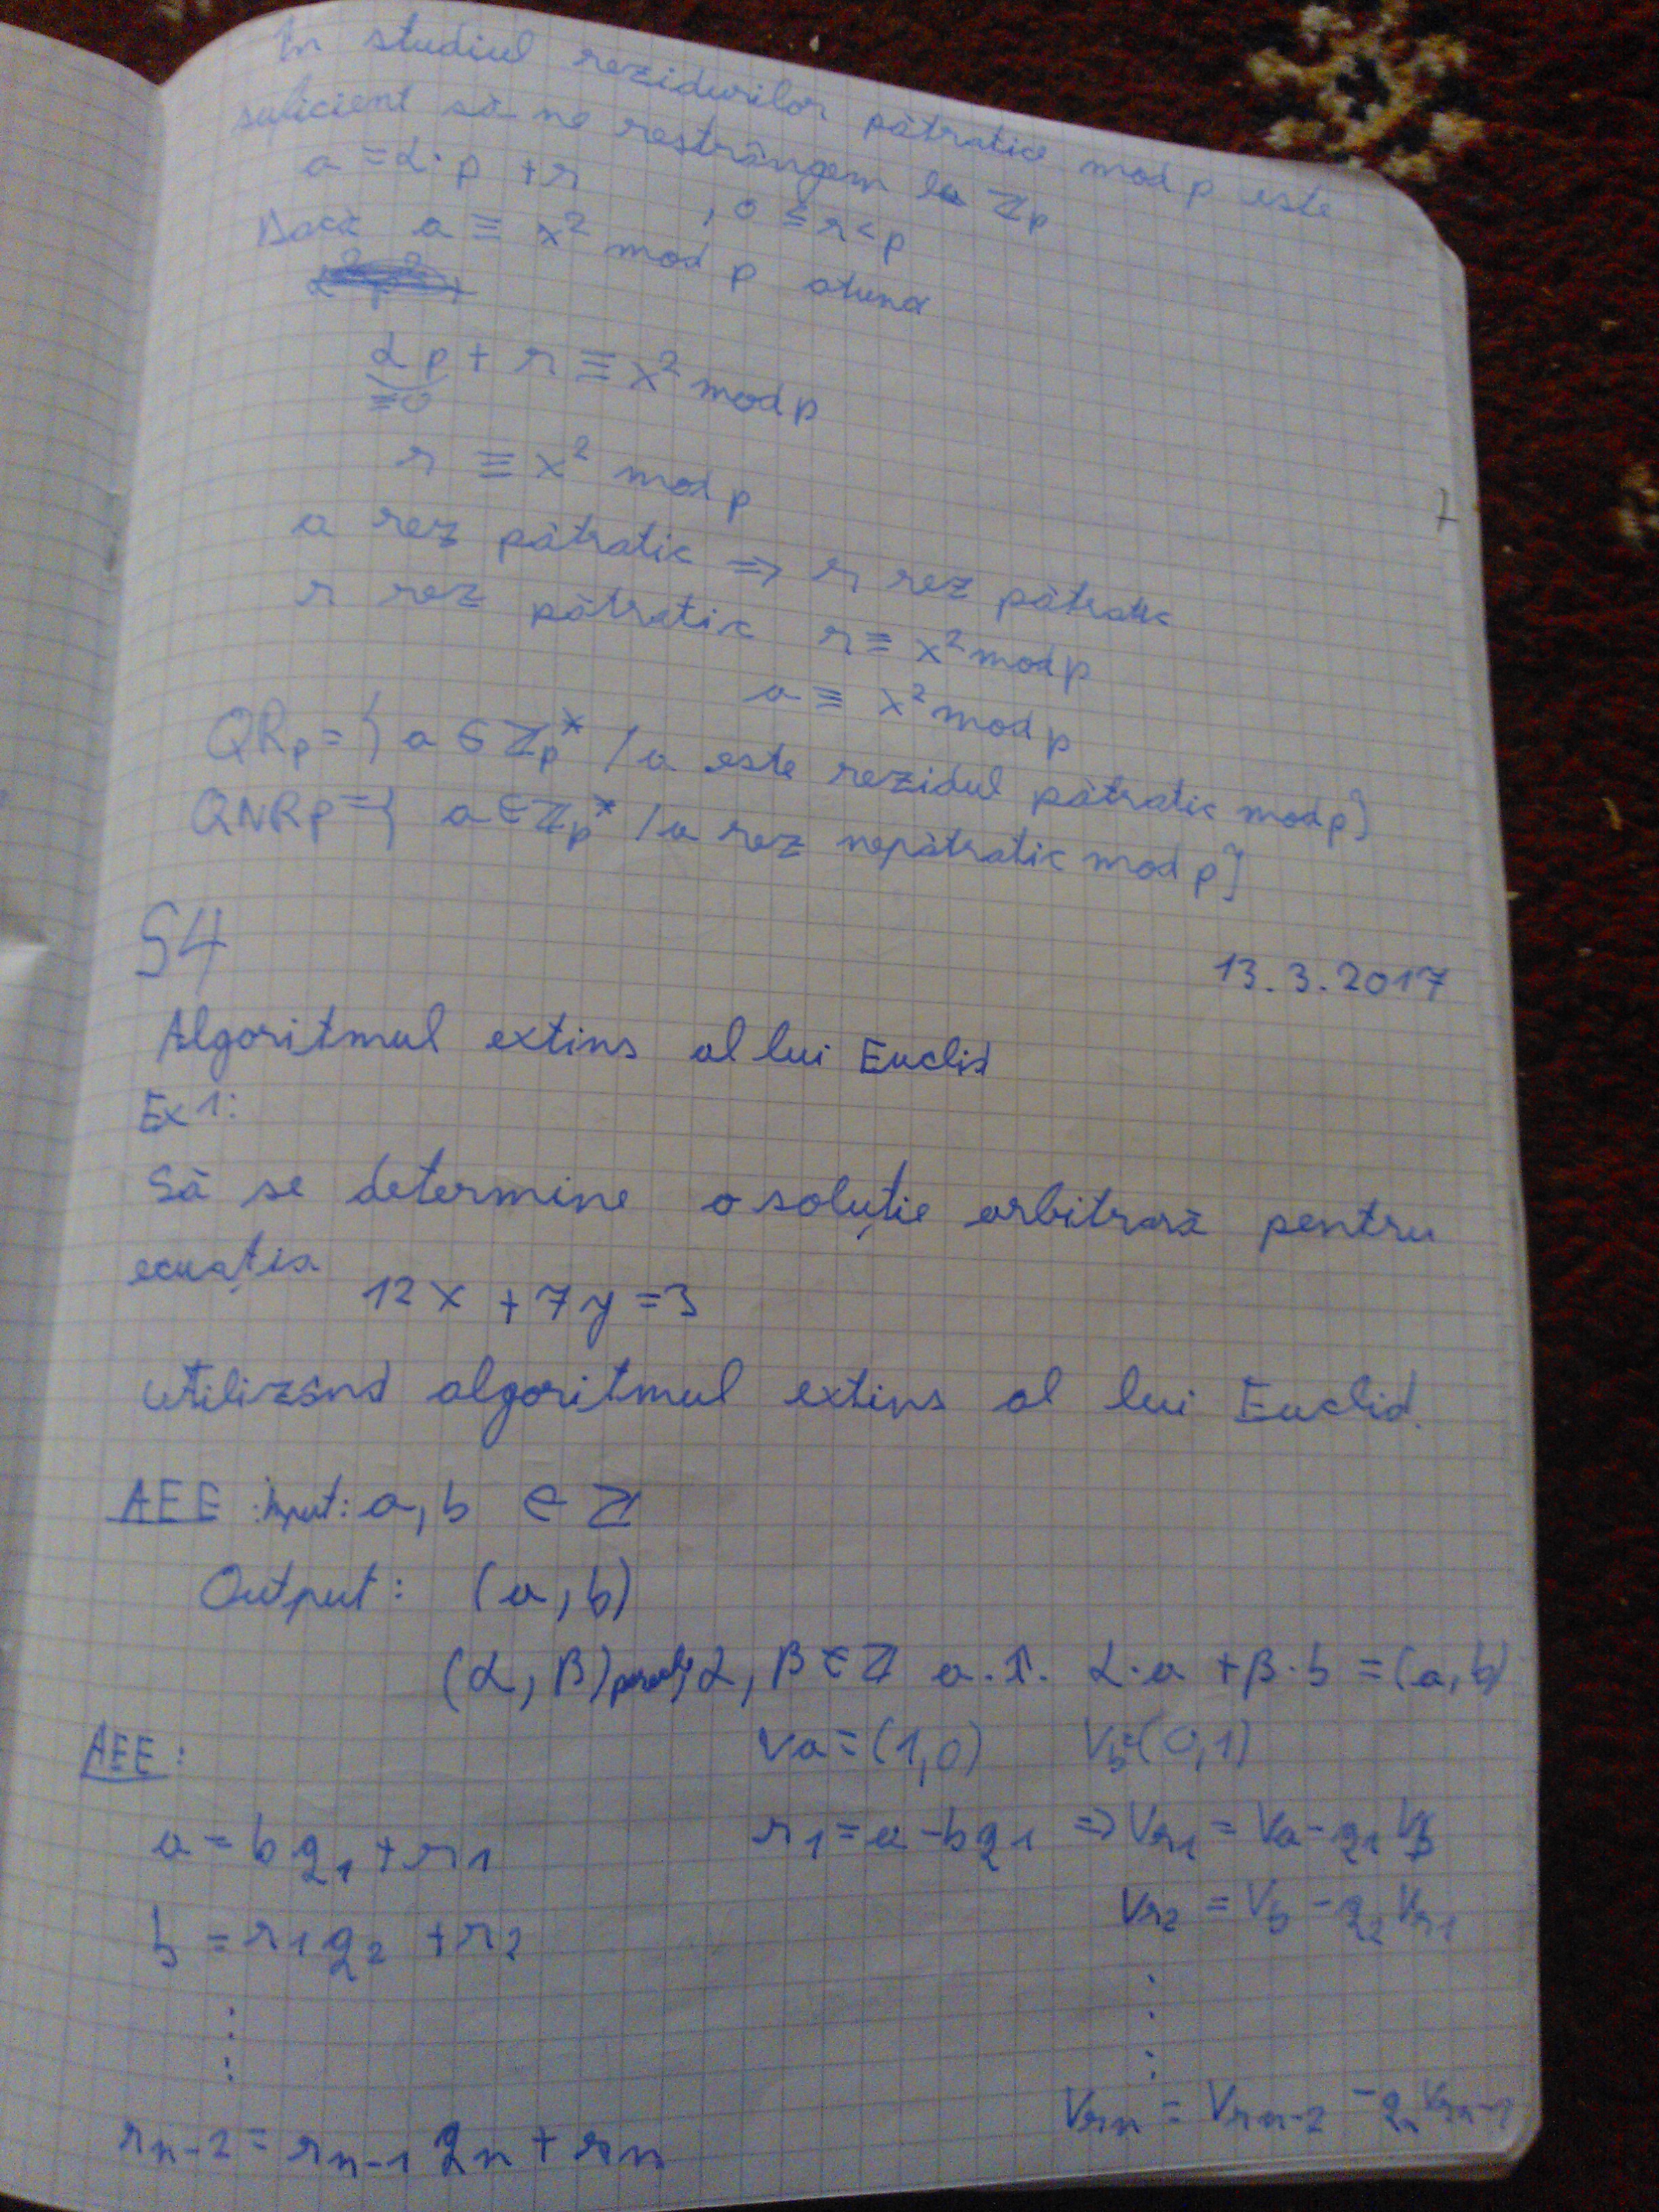 În studiul rezidurilor pătratice mod p este
suficient să ne restrângem la ℤp
a = α·p + r , 0 ≤ r < p
Dacă a ≡ x² mod p atunci
αp + r ≡ x² mod p
≡0
r ≡ x² mod p
a rez pătratic ⇒ r rez pătratic
r rez pătratic r ≡ x² mod p
a ≡ x² mod p
QRp = { a ∈ ℤp* / a este rezidul pătratic mod p}
QNRp = { a ∈ ℤp* / a rez nepătratic mod p}
S4
13.3.2017
Algoritmul extins al lui Euclid
Ex 1:
Să se determine o soluție arbitrară pentru
ecuația
12x + 7y = 3
utilizând algoritmul extins al lui Euclid.
AEE : Input: a, b ∈ ℤ
Output: (a, b)
(α, β) α, β ∈ ℤ a.î. α·a + β·b = (a, b)
AEE: Va = (1,0) Vb = (0,1)
a = bq₁ + r₁ r₁ = a - bq₁ ⇒ Vr₁ = Va - q₁Vb
b = r₁q₂ + r₂ Vr₂ = Vb - q₂Vr₁
⋮ ⋮
rn-2 = rn-1 qn + rn Vrn = Vrn-2 - qn Vrn-1